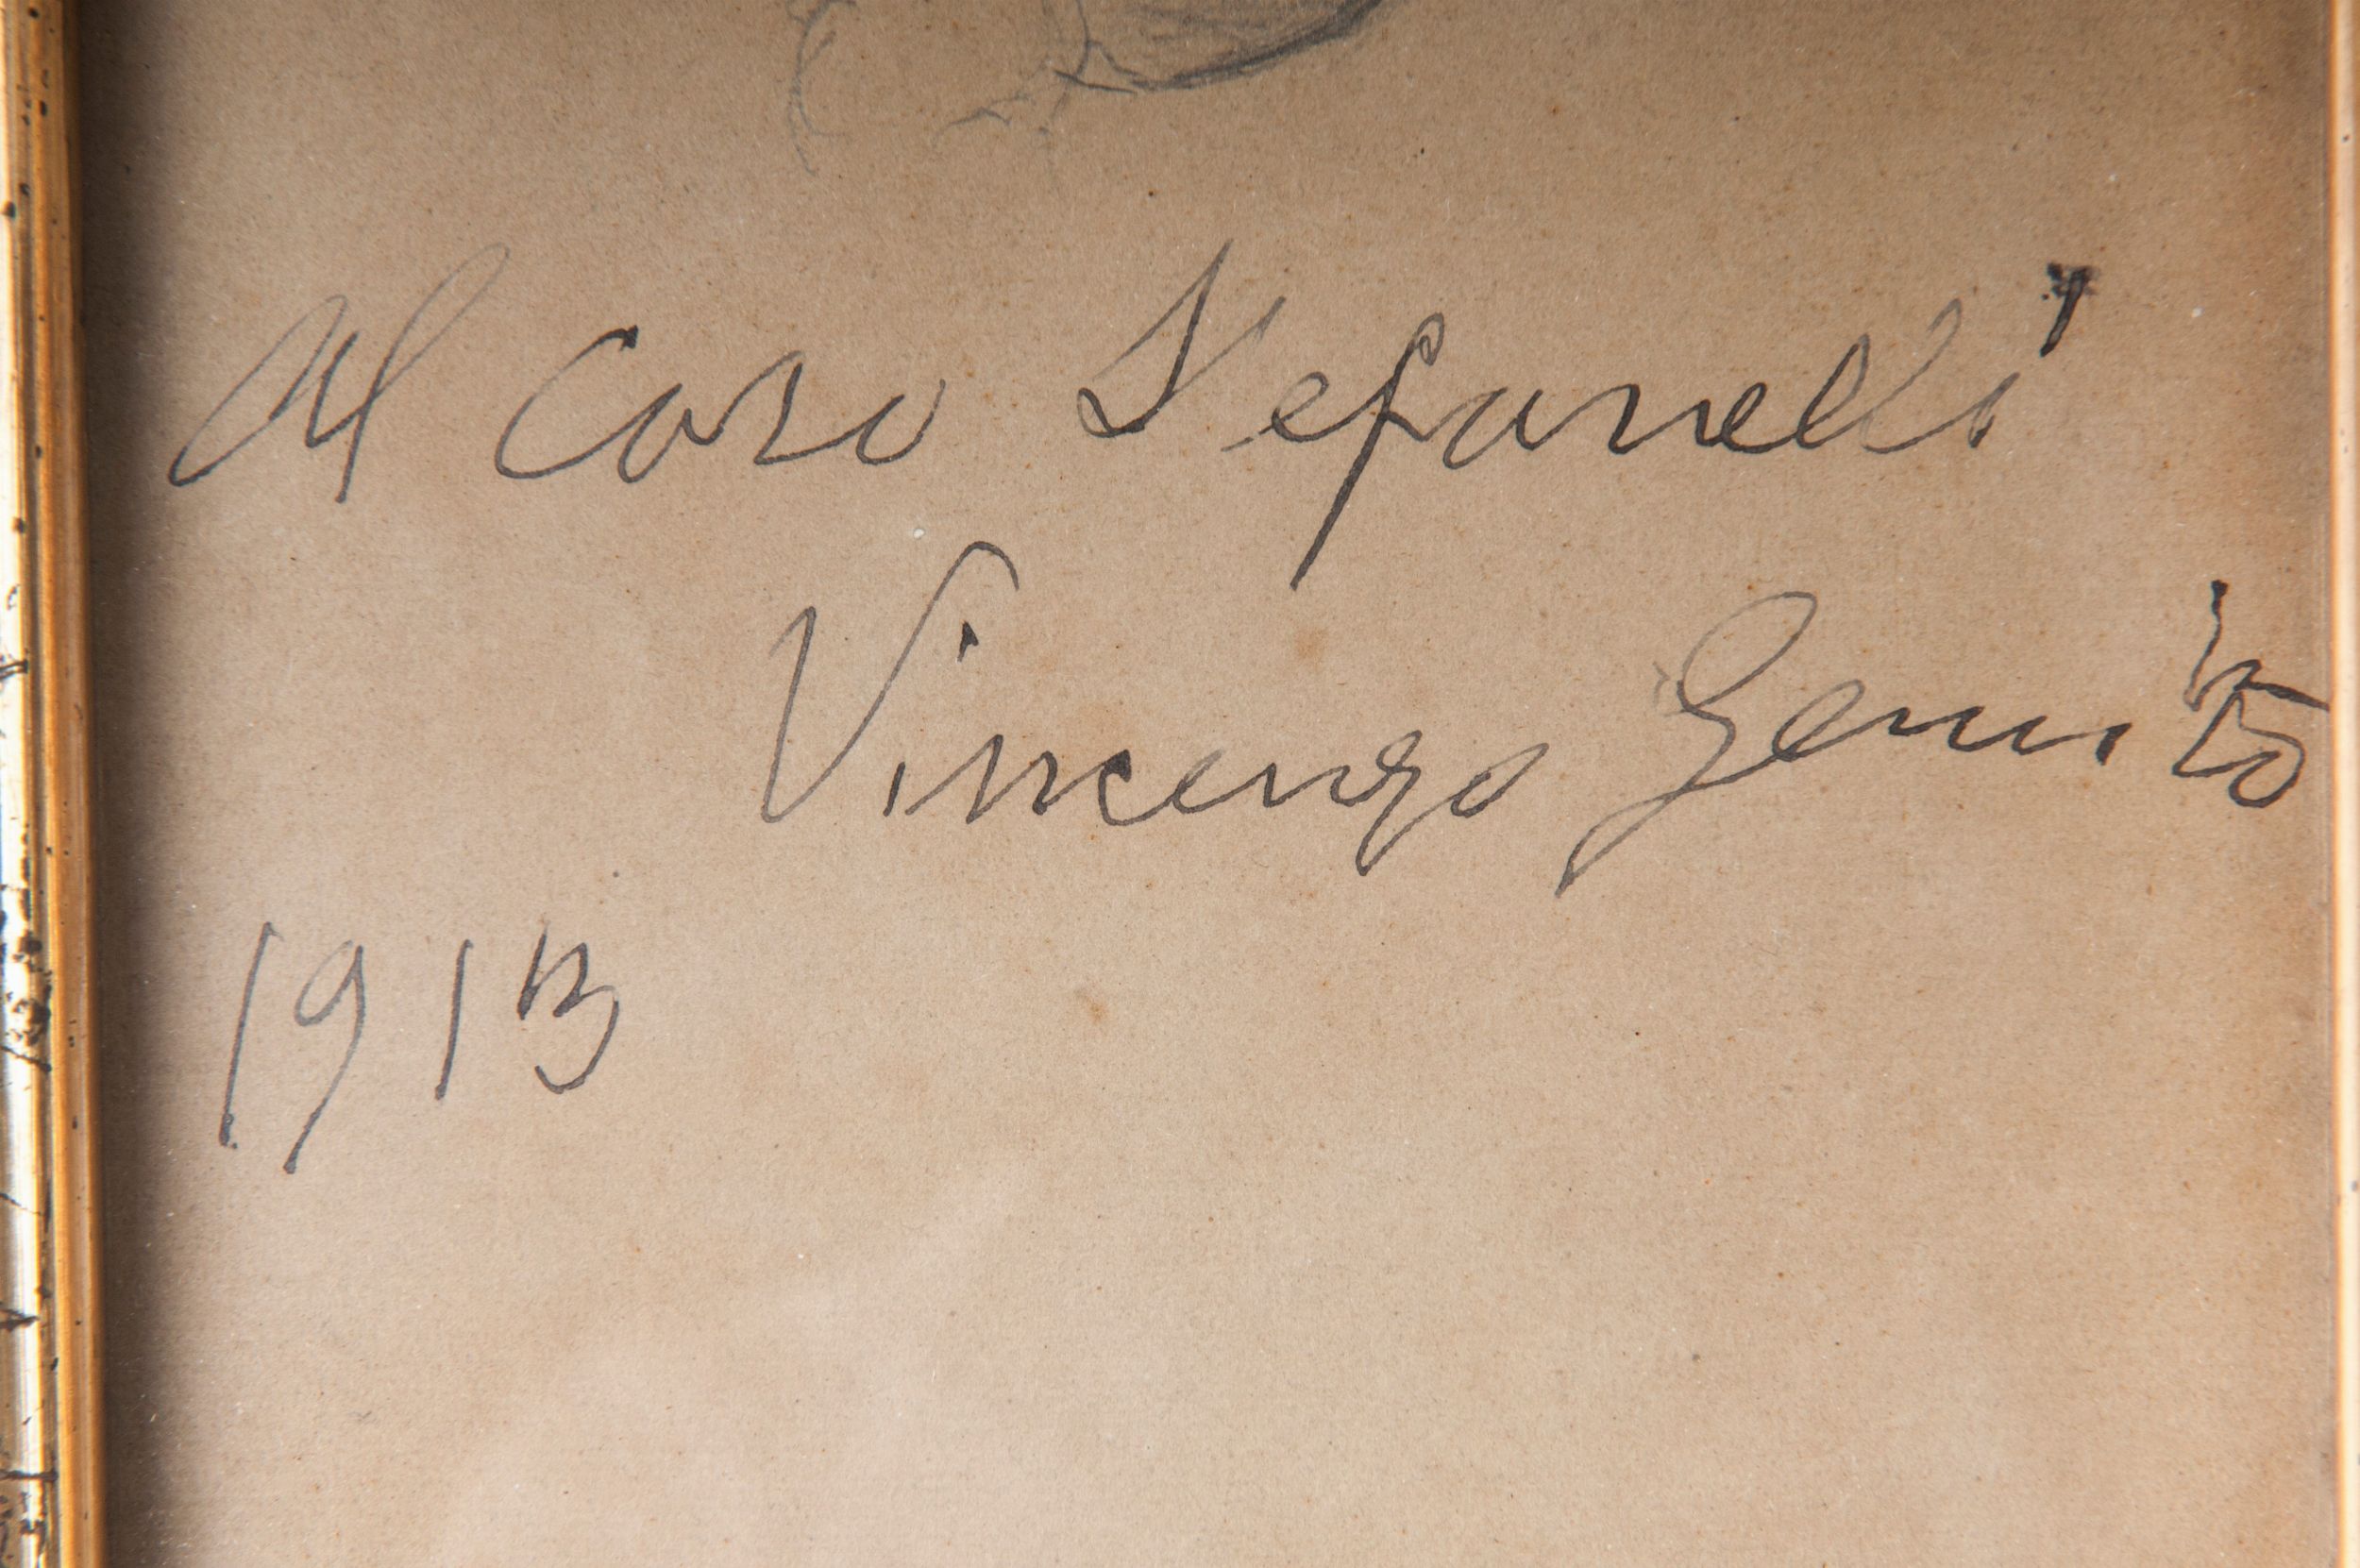 Al caro Stefanelli
Vincenzo Gemito
1913